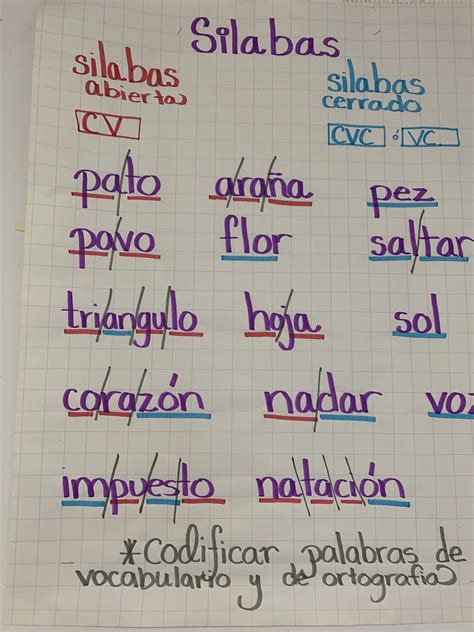 Silabas
silabas
abiertas
CV
silabas
cerrado
CVC ó VC
pa/to a/ra/ña pez
pa/vo flor sal/tar
tri/an/gu/lo ho/ja sol
co/ra/zón na/dar voz
im/pu/es/to na/ta/ción
*Codificar palabras de
vocabulario y de ortografias